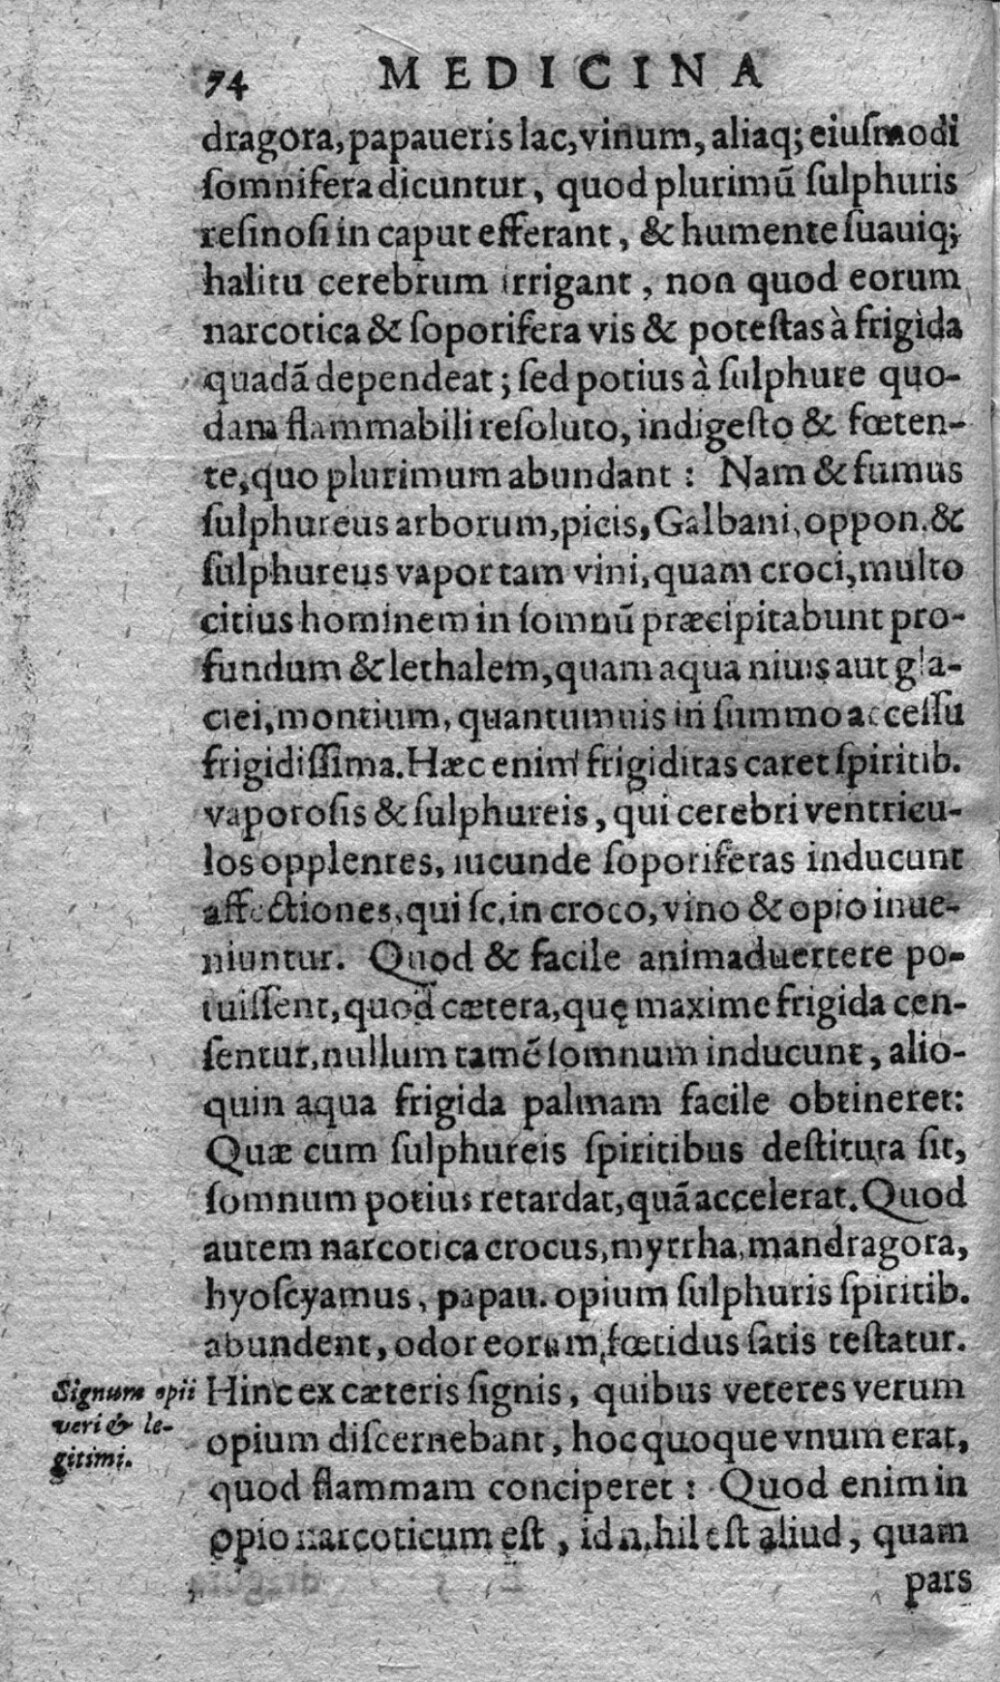 74 MEDICINA
dragora, papaueris lac, vinum, aliaq; eiuſmodi
ſomnifera dicuntur, quod plurimū ſulphuris
reſinoſi in caput efferant, & humente ſuauiq;
halitu cerebrum irrigant, non quod eorum
narcotica & ſoporifera vis & poteſtas à frigida
quadā dependeat; ſed potius à ſulphure quo-
dam flammabili reſoluto, indigeſto & fœten-
te, quo plurimum abundant: Nam & fumus
ſulphureus arborum, picis, Galbani, oppon. &
ſulphureus vapor tam vini, quam croci, multo
citius hominem in ſomnū præcipitabunt pro-
fundum & lethalem, quam aqua niuis aut gla-
ciei, montium, quantumuis in ſummo acceſſu
frigidiſſima. Hæc enim frigiditas caret ſpiritib.
vaporoſis & ſulphureis, qui cerebri ventricu-
los opplentes, iucunde ſoporiferas inducunt
affectiones, qui ſc. in croco, vino & opio inue-
niuntur. Quod & facile animaduertere po-
tuiſſent, quod cætera, quę maxime frigida cen-
ſentur, nullum tamē ſomnum inducunt, alio-
quin aqua frigida palmam facile obtineret:
Quæ cum ſulphureis ſpiritibus deſtituta ſit,
ſomnum potius retardat, quā accelerat. Quod
autem narcotica crocus, myrrha, mandragora,
hyoſcyamus, papau. opium ſulphuris ſpiritib.
abundent, odor eorum fœtidus ſatis teſtatur.
Signum opii
veri & le-
gitimi.
Hinc ex cæteris ſignis, quibus veteres verum
opium diſcernebant, hoc quoque vnum erat,
quod flammam conciperet: Quod enim in
opio narcoticum eſt, id nihil eſt aliud, quam
pars